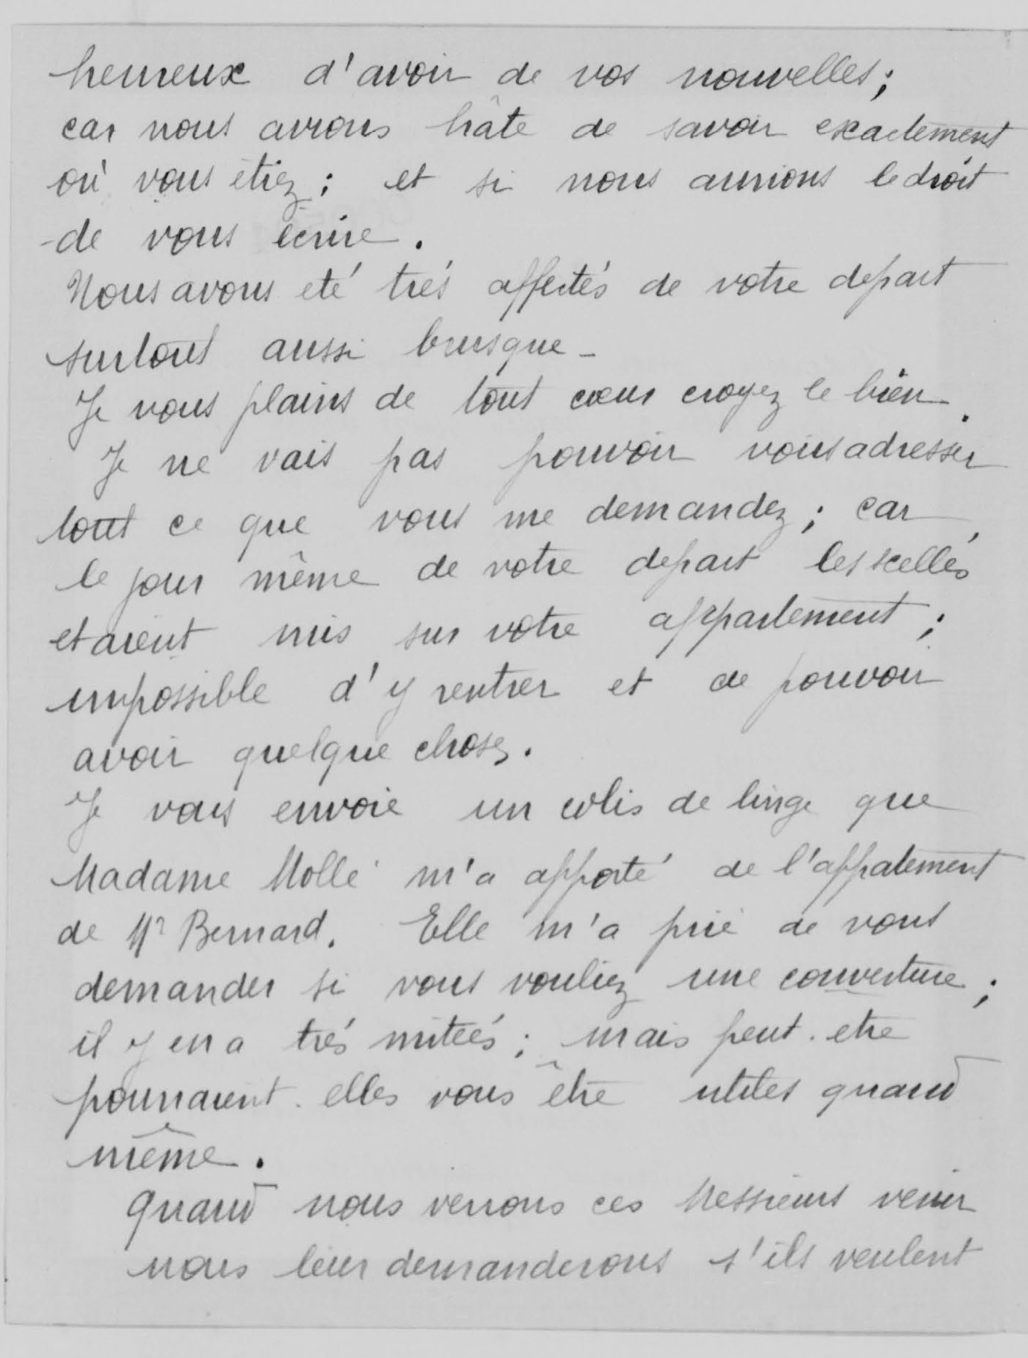 heureux d'avoir de vos nouvelles;
car nous avions hâte de savoir exactement
où vous étiez; et si nous aurions le droit
de vous écrire.
Nous avons eté trés affectés de votre depart
surtout aussi brusque -
Je vous plains de tout cœur croyez le bien.
Je ne vais pas pouvoir vous adresser
tout ce que vous me demandez; car,
le jour même de votre depart les scellés
etaient mis sur votre appartement;
impossible d'y rentrer et de pouvoir
avoir quelque chose.
Je vous envoie un colis de linge que
Madame Mollé m'a apporté de l'appatement
de Mr Bernard. Elle m'a prié de vous
demander si vous vouliez une couverture;
il y en a trés mitées; mais peut-etre
pourraient-elles vous être utiles quand
même.
Quand nous verrons ces Messieurs venir
nous leur demanderons s'ils veulent